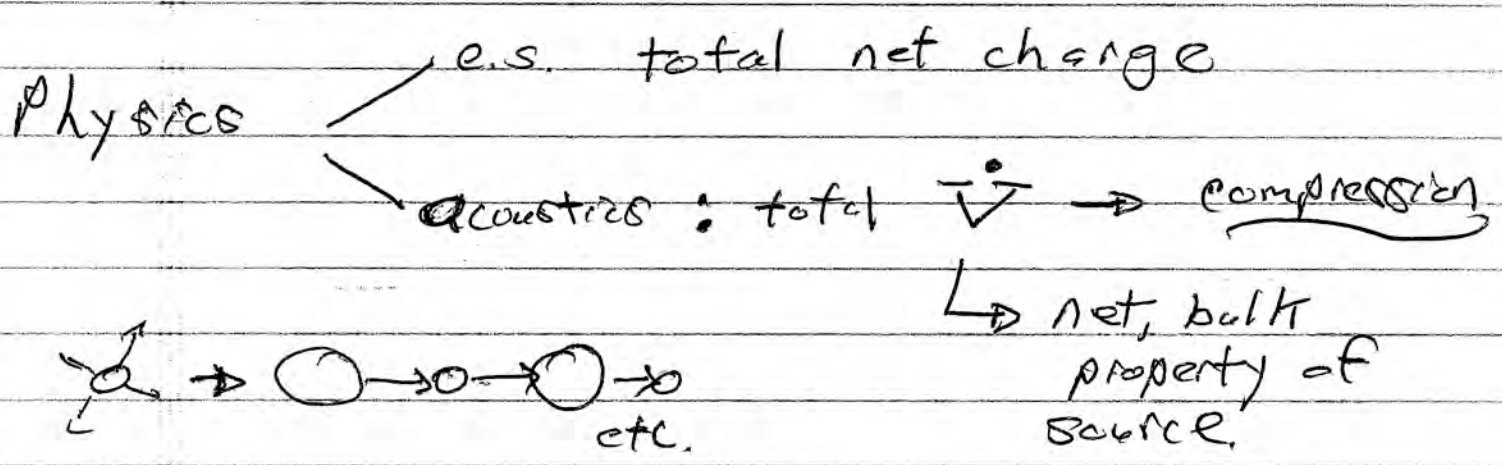 e.s. total net charge
Physics
acoustics : total V̇ → compression
↳ net, bulk
property of
source.
etc.